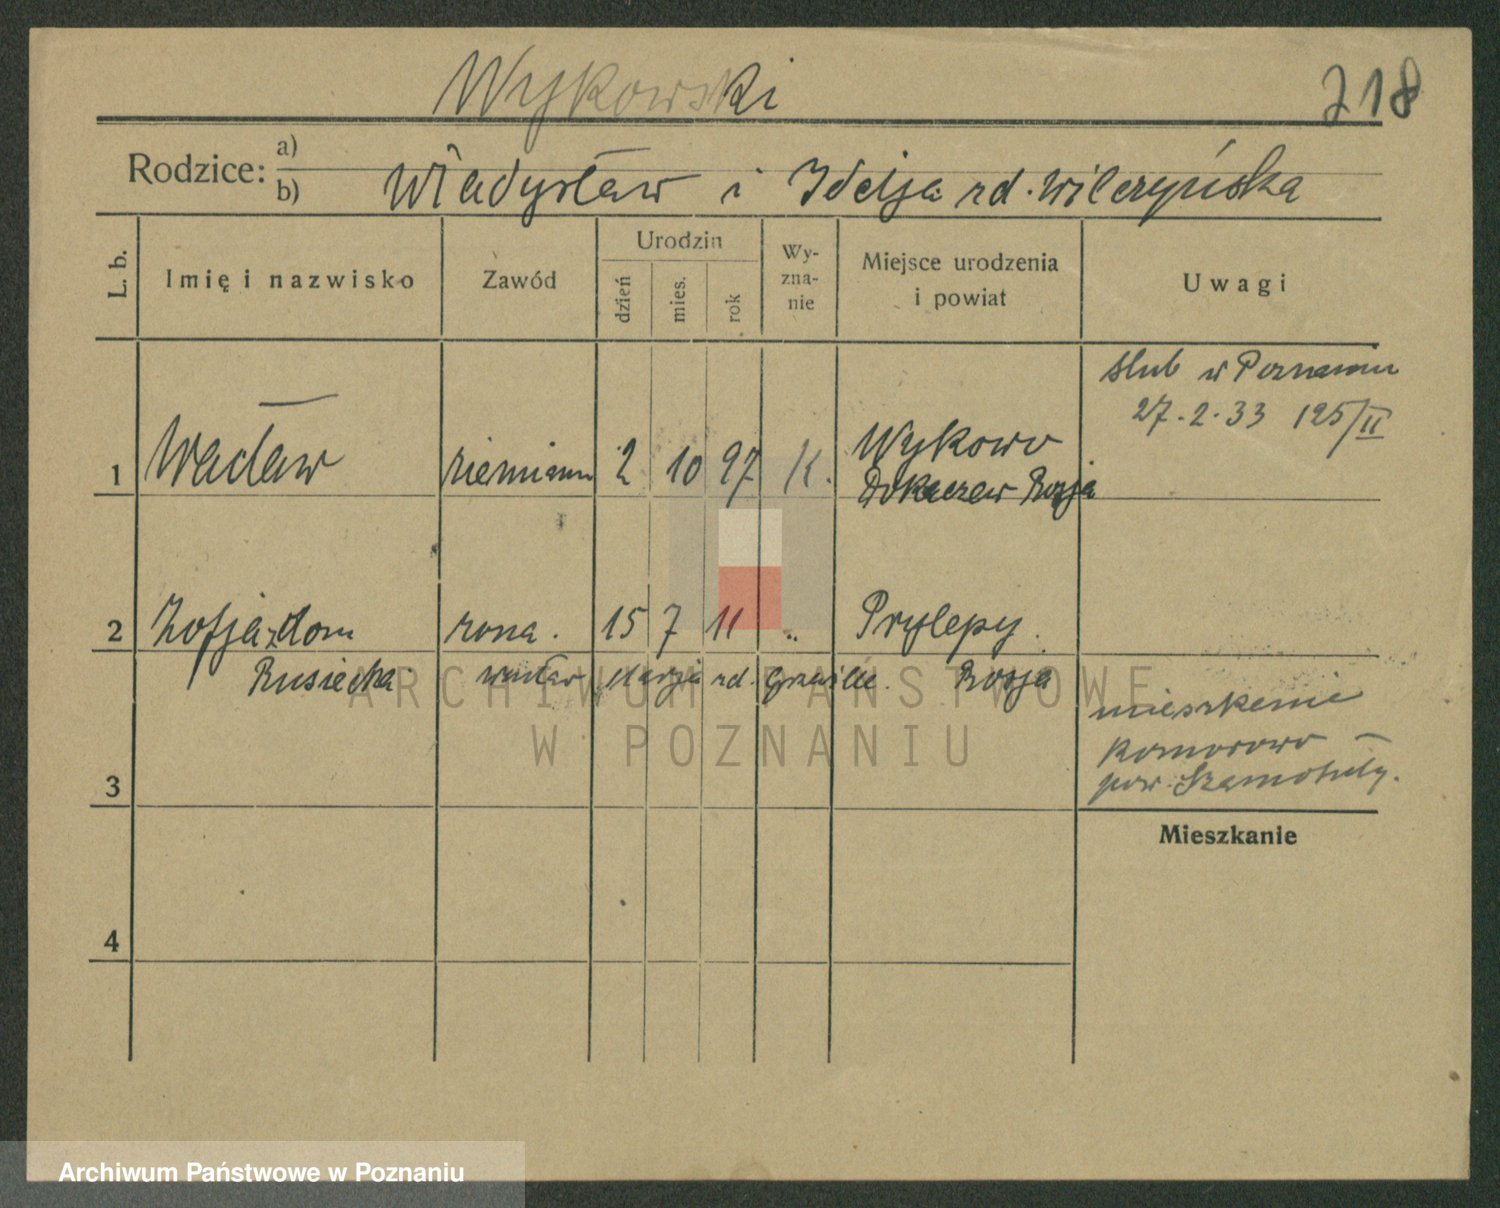 Wykowski
218
Rodzice: a)
b)
Władysław i Idelja zd. Wilczyńska
L. b.
Imię i nazwisko
Zawód
Urodzin
dzień
mies.
rok
Wy-
zna-
nie
Miejsce urodzenia
i powiat
Uwagi
ślub w Poznaniu
27.2.33 125/II
1 Wacław ziemianin 2 10 97 K. Wykowo
Rosja
2 Zofja z dom żona. 15 7 11 „ Prylepy
Rusiecka Wacław Marja zd. Rosja
mieszkanie
Komorowo
pow. Szamotuły.
3
Mieszkanie
4
ARCHIWUM PAŃSTWOWE
W POZNANIU
Archiwum Państwowe w Poznaniu